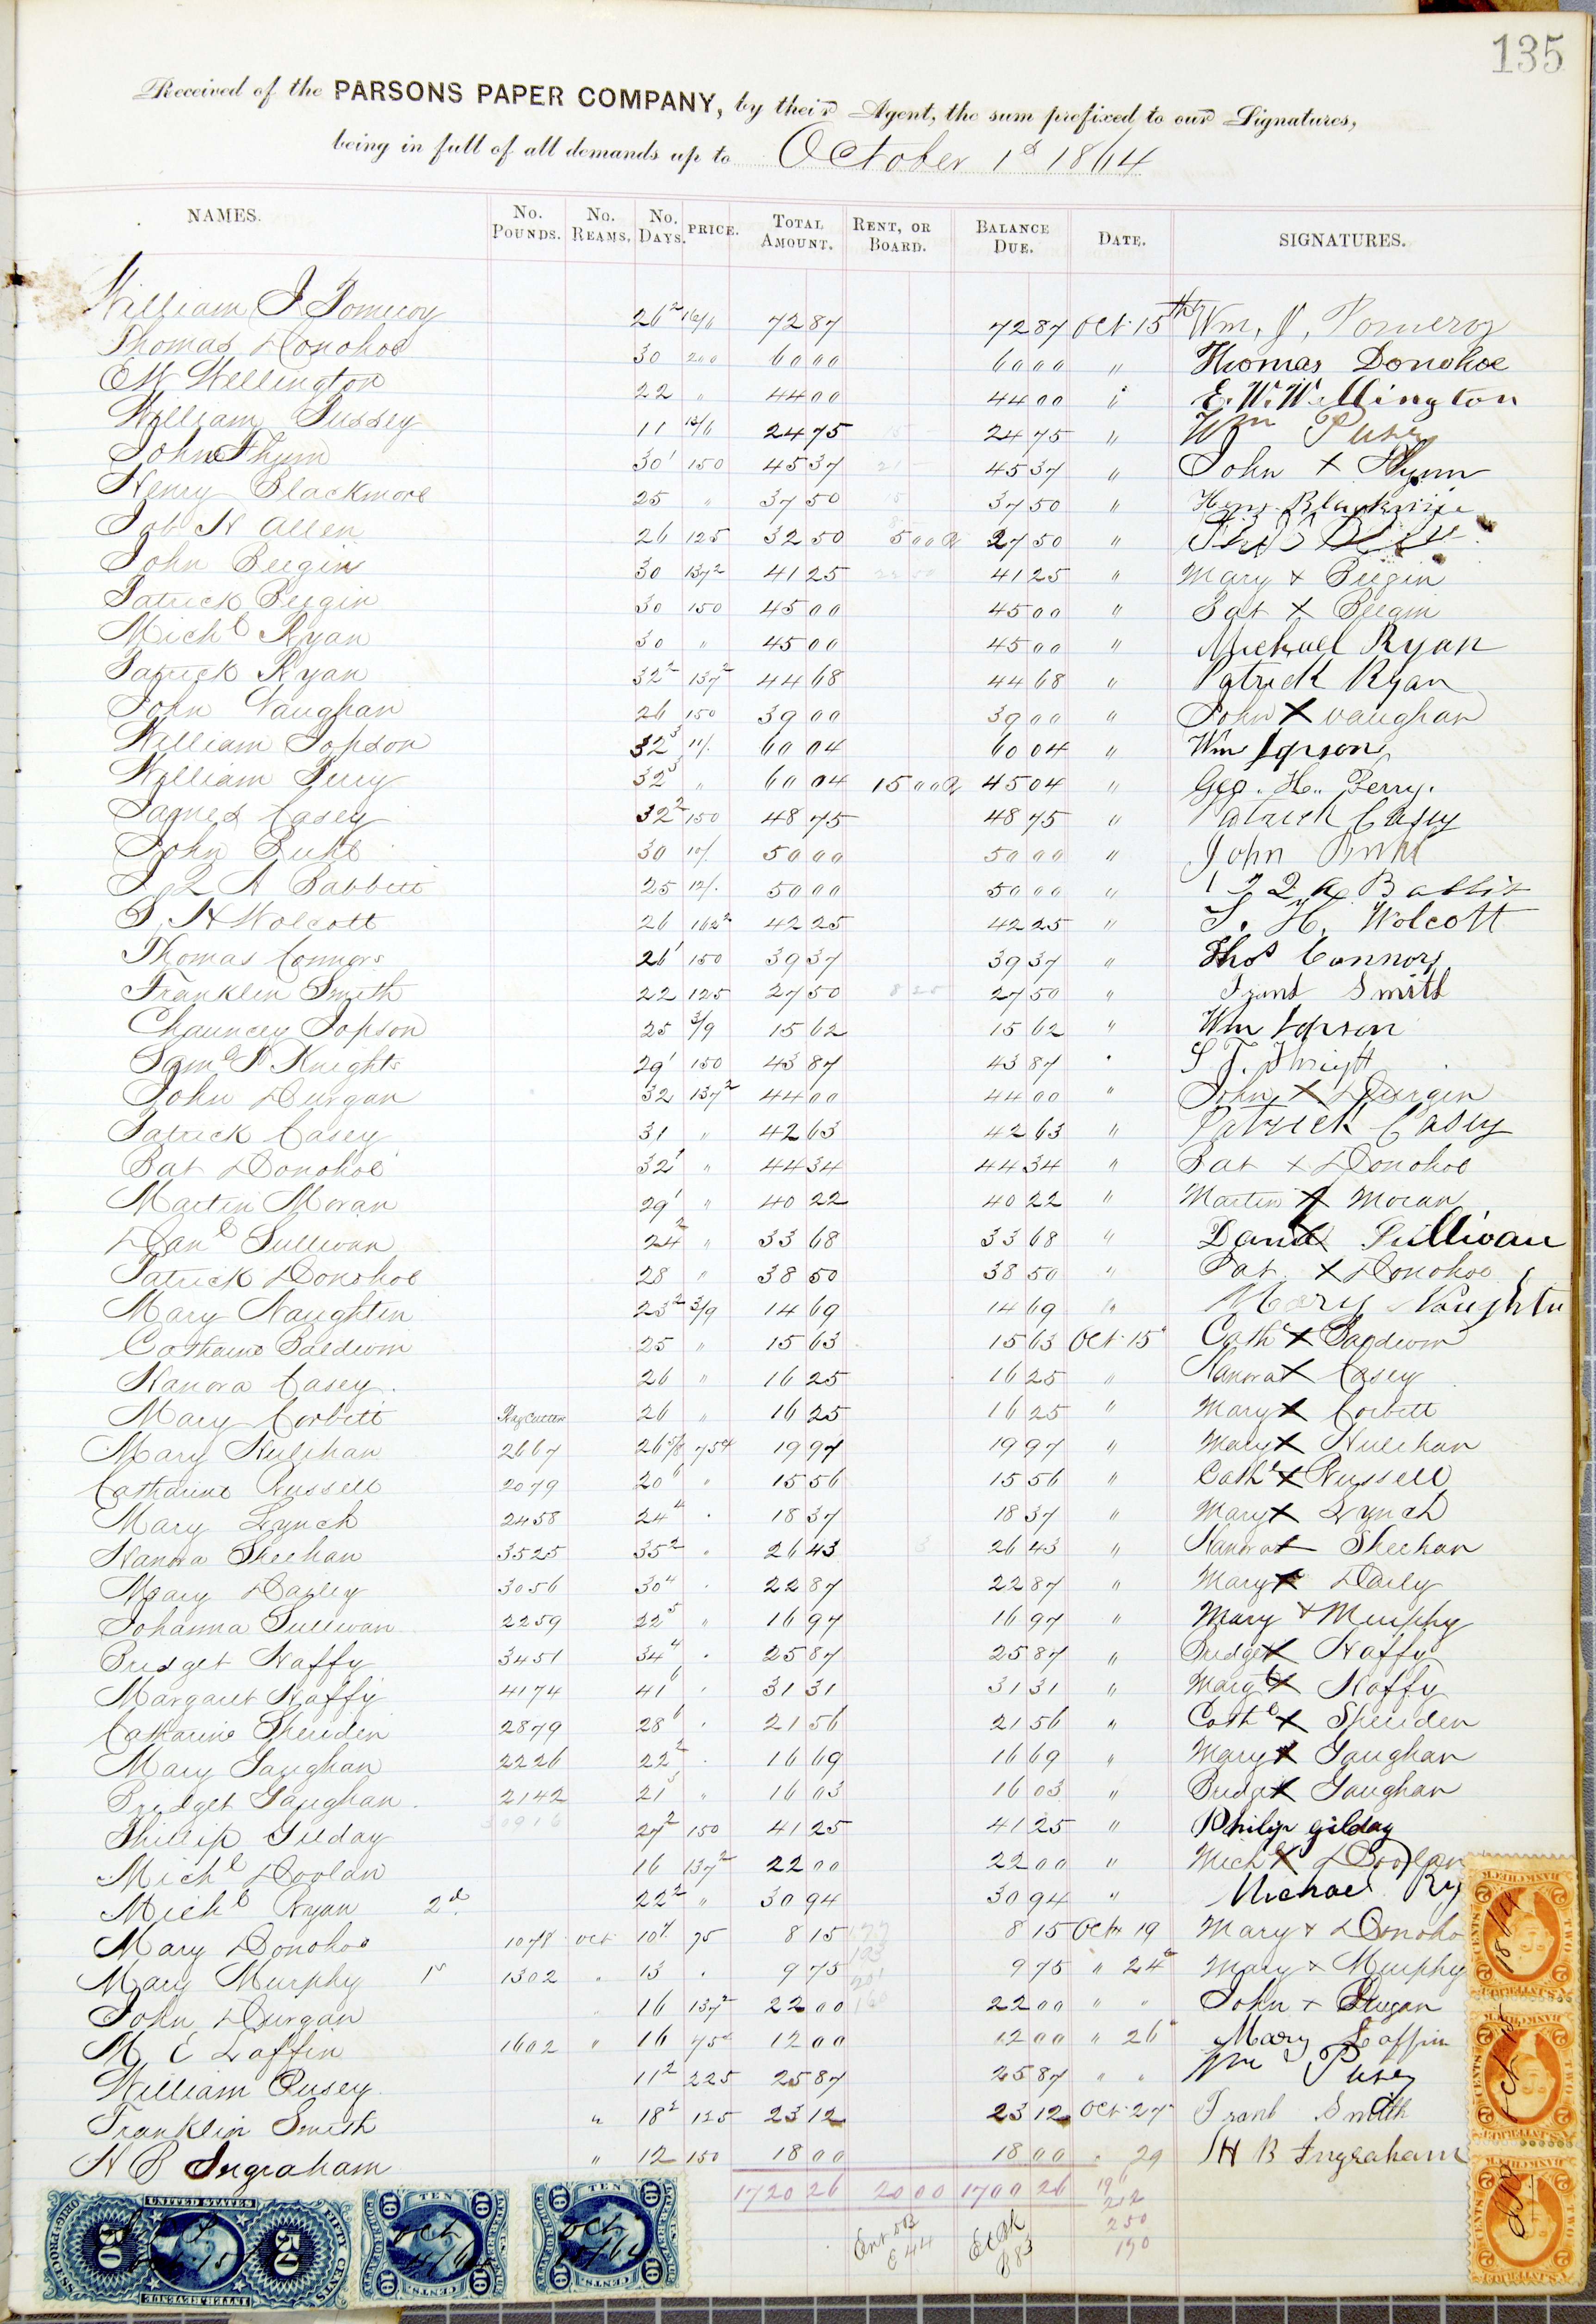 135
Received of the PARSONS PAPER COMPANY, by their Agent, the sum prefixed to our Signatures,
being in full of all demands up to October 1st 1864
NAMES. No. Pounds. No. Reams. No. Days. Price. Total Amount. Rent, or Board. Balance Due. Date. SIGNATURES.
William J Pomeroy 26 2 16/6 72 87 72 87 Oct. 15th Wm. J. Pomeroy
Thomas Donohoe 30 200 60 00 60 00 " Thomas Donohoe
E W Wellington 22 " 44 00 44 00 " E. W. Wellington
William Pussey 11 24 75 24 75 " Wm Pusey
John Flynn 30 1 150 45 37 45 37 " John X Flynn
Henry Blackmore 25 " 37 50 37 50 " Heny. Blackmore
Job H Allen 26 125 32 50 5 00 27 50 "
John Beegin 30 137 2 41 25 41 25 " Mary X Beegin
Patrick Beegin 30 150 45 00 45 00 " Pat X Beegin
Michl Ryan 30 " 45 00 45 00 " Michael Ryan
Patrick Ryan 32 2 137 2 44 68 44 68 " Patrick Ryan
John Vaughan 26 150 39 00 39 00 " John X Vaughan
William Jopson 32 3 11/. 60 04 60 04 " Wm Jopson
William Perry 32 3 " 60 04 15 00 45 04 " Geo. H. Perry.
James Casey 32 2 150 48 75 48 75 " Patrick Casey
John Buhl 30 10/. 50 00 50 00 " John Buhl
J Q A Babbitt 25 12/. 50 00 50 00 " J Q A Babbit
S. H Wolcott 26 162 2 42 25 42 25 " S. H. Wolcott
Thomas Connors 26 1 150 39 37 39 37 " Thos Connors
Franklin Smith 22 125 27 50 8 25 27 50 " Frank Smith
Chauncey Jopson 25 3/9 15 62 15 62 " Wm Jopson
Saml T Knights 29 1 150 43 87 43 87 " S T. Knight
John Durgan 32 137 2 44 00 44 00 " John X Durgin
Patrick Casey 31 " 42 63 42 63 " Patrick Casey
Bat Donohoe 32 1 " 44 34 44 34 " Bat X Donohoe
Martin Moran 29 1 " 40 22 40 22 " Martin X Moran
Danl Sullivan 24 2 " 33 68 33 68 " Danid Sullivan
Patrick Donohoe 28 " 38 50 38 50 " Pat X Donohoe
Mary Naughtin 23 2 3/9 14 69 14 69 " Mary Naughtn
Catharine Baldwin 25 " 15 63 15 63 Oct. 15 Cathe X Baldwin
Hanora Casey 26 " 16 25 16 25 " Hanora X Casey
Mary Corbett Rag Cutters 26 " 16 25 16 25 " Mary X Corbett
Mary Hulihan 2667 26 5/8 75 19 97 19 97 " Mary X Hulihan
Catharine Russell 2079 20 6 " 15 56 15 56 " Cathe X Russell
Mary Lynch 2458 24 4 " 18 37 18 37 " Mary X Lynch
Hanora Sheehan 3525 35 2 " 26 43 3 26 43 " Hanora X Sheehan
Mary Dailey 3056 30 4 " 22 87 22 87 " Mary X Daily
Johanna Sullivan 2259 22 5 " 16 97 16 97 " Mary X Murphy
Bridget Haffy 3451 34 4 " 25 87 25 87 " Bridget X Haffy
Margaret Haffy 4174 41 6 " 31 31 31 31 " Margt X Haffy
Catharine Sheriden 2879 28 6 " 21 56 21 56 " Cathe X Sheriden
Mary Gaughan 2226 22 2 " 16 69 16 69 " Mary X Gaughan
Bridget Gaughan 2142 21 3 " 16 03 16 03 " Bridgt X Gaughan
Phillip Gilday 30916 27 2 150 41 25 41 25 " Philip Gilday
Michl Doolan 16 137 2 22 00 22 00 " Michl X Doolan
Michl Ryan 2d 22 2 " 30 94 30 94 " Michael Ry
Mary Donohoe 1078 Oct 10 75 8 15 8 15 Oct 19 Mary X Donoho
Mary Murphy 1st 1302 " 13 " 9 75 9 75 " 24 Mary X Murphy
John Durgan " 16 137 2 22 00 22 00 " " John X Durgan
M E Laffin 1602 " 16 75 12 00 12 00 " 26 Mary Laffin
William Pusey 11 2 225 25 87 25 87 " " Wm Pusey
Franklin Smith " 18 2 125 23 12 23 12 Oct. 27 Frank Smith
H B Ingraham " 12 150 18 00 18 00 " 29 H B Ingraham
1720 26 20 00 1700 26
212
250
190
UNITED STATES
50 50
FIFTY CENTS
INTER. REVENUE
TEN
10 10
CENTS.
TEN
10 10
CENTS.
Oct
TWO CENTS
1864
Oct 15